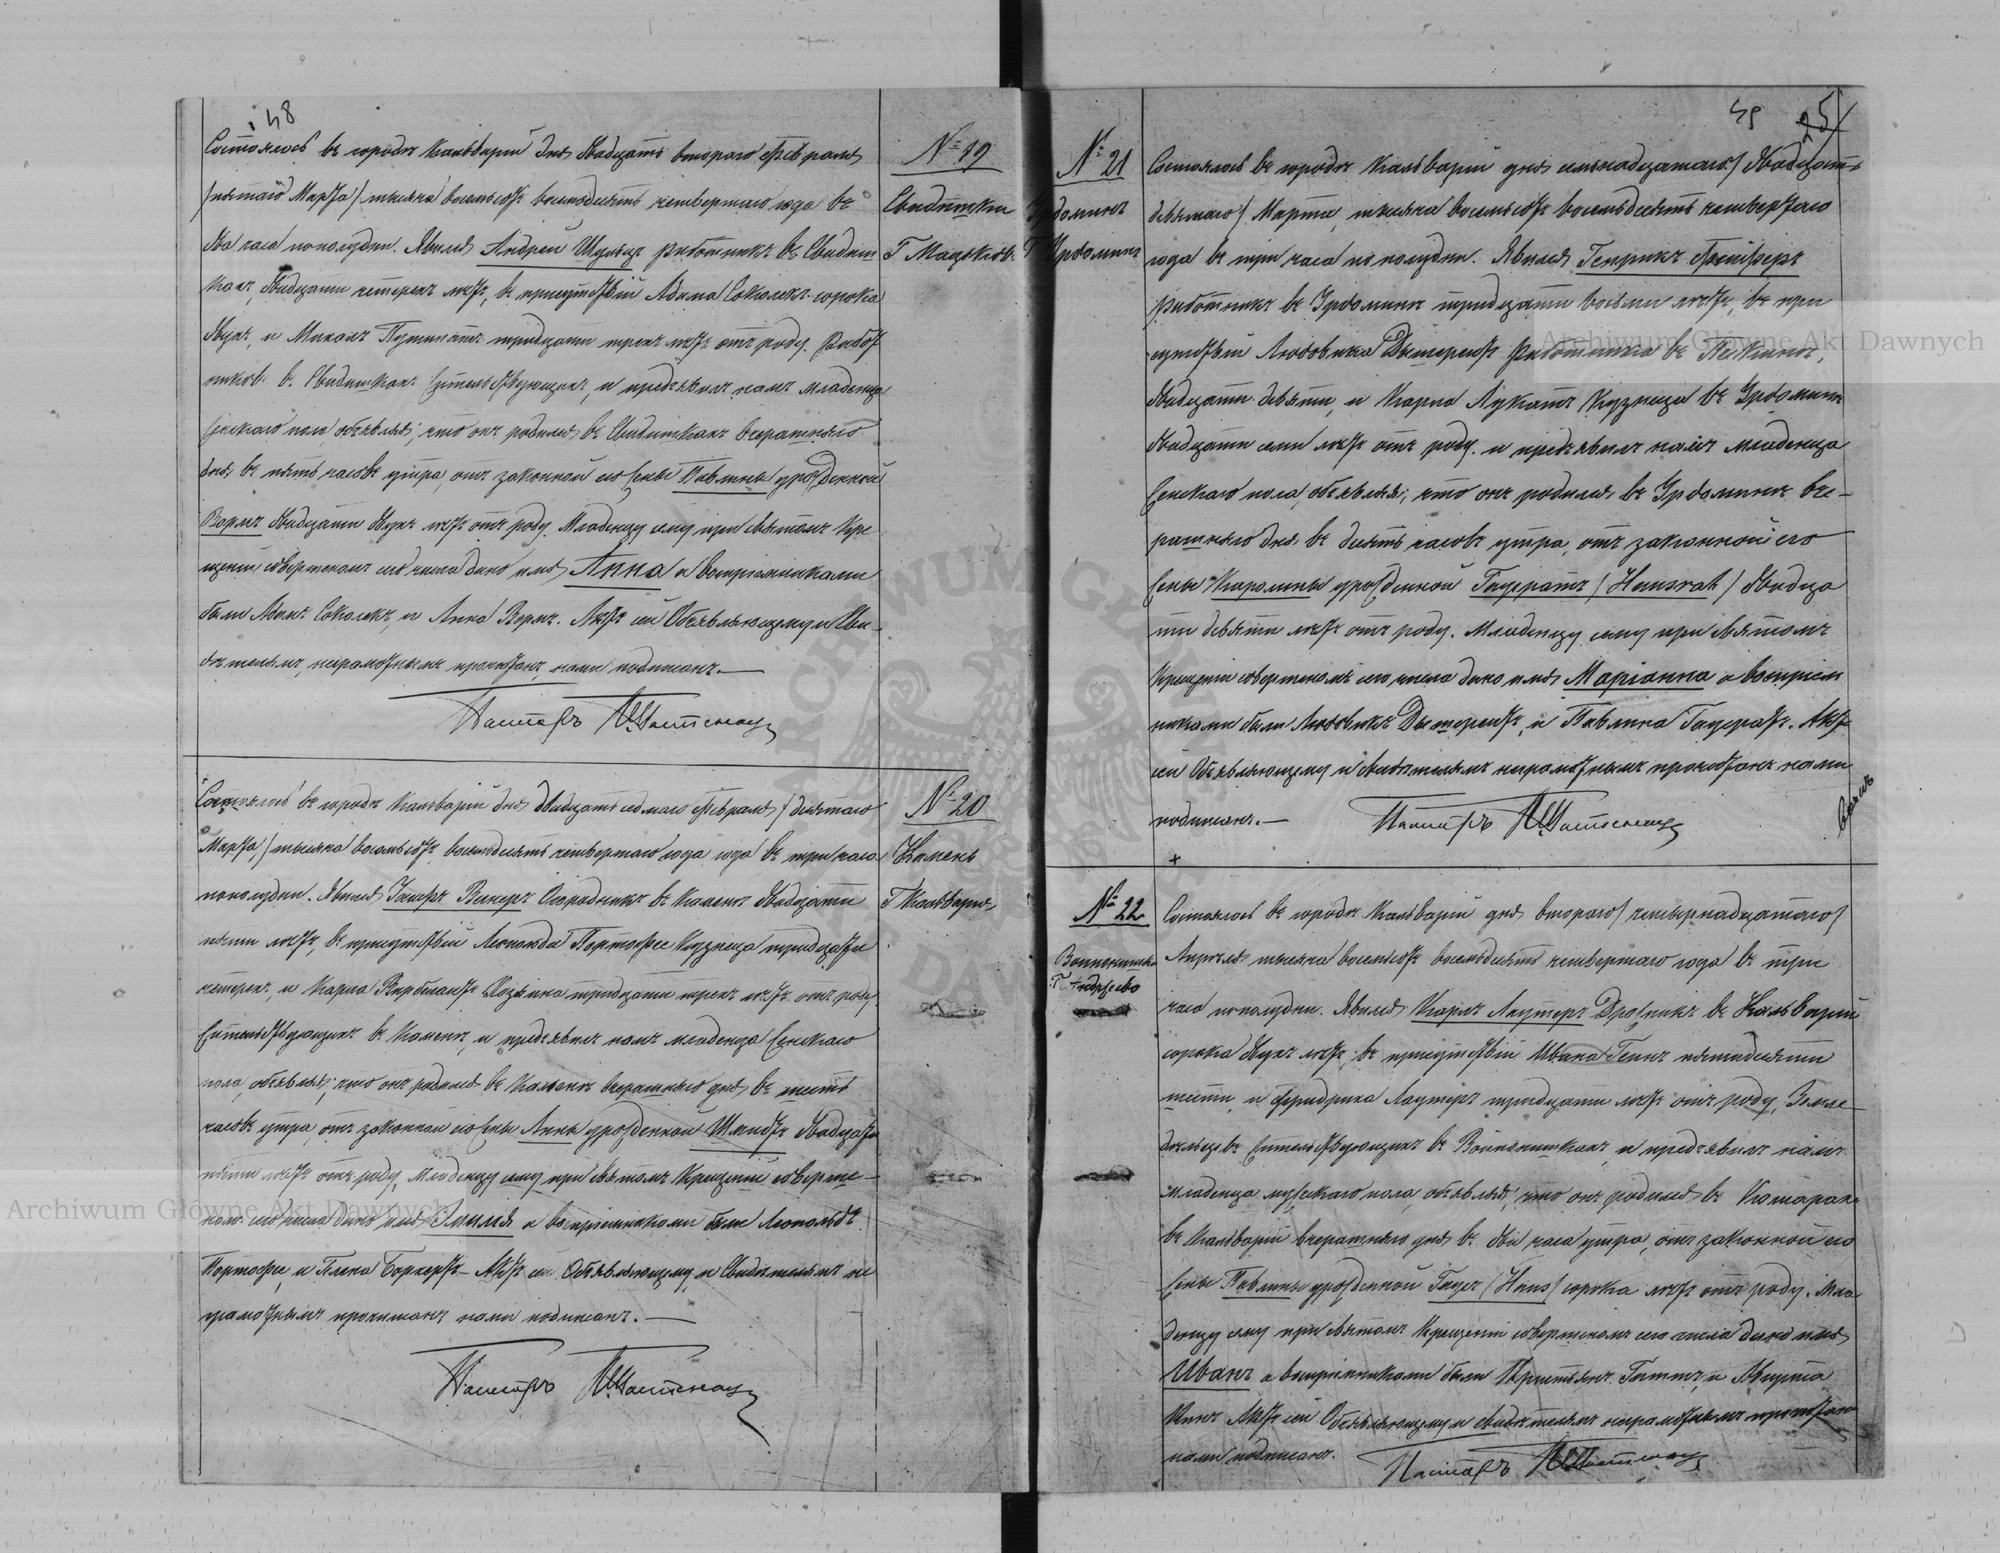 48
Состоялось въ городѣ Кальваріи дня двадцать втораго Февраля
/пятаго Марта/ тысяча восемьсотъ восемьдесятъ четвертаго года въ
два часа пополудни. Явился Андрей Шульцъ работникъ въ Свидиш
кахъ, двадцати четырехъ лѣтъ, въ присутствіи Адама Соколекъ сорока
двухъ, и Михаила тридцати трехъ лѣтъ отъ роду. Работ
никовъ въ Свидишкахъ жительствующихъ, и предъявилъ намъ младенца
женскаго пола объявляя, что онъ родился въ Свидишкахъ вчерашняго
дня въ пять часовъ утра, отъ законной его жены Павлины урожденной
Вормъ двадцати двухъ лѣтъ отъ роду. Младенцу сему при святомъ Кре
щеніи совершенномъ сего числа дано имя Анна а воспріемниками
были Адамъ Соколекъ, и Анна Вормъ. Актъ сей Объявляющему и Сви-
дѣтелямъ, неграмотнымъ прочитанъ, нами подписанъ.—
Пасторъ
№ 19
Свидишки
Г
Состоялось въ городѣ Кальваріи дня двадцать седьмаго Февраля /десятаго
Марта,/ тысяча восемьсотъ восемьдесятъ четвертаго года года въ три часа
пополудни. Явился Вагнеръ Огородникъ въ Каменѣ двадцати
пяти лѣтъ, въ присутствіи Леопольда Портофее Кузнеца тридцати
четырехъ, и Карла Хозяина тридцати трехъ лѣтъ отъ роду
жительствующихъ въ Каменѣ, и предъявилъ намъ младенца женскаго
пола, объявляя, что онъ родился въ Каменѣ вчерашняго дня въ шесть
часовъ утра, отъ законной его жены Анны урожденной Шмидтъ двадцати
пяти лѣтъ отъ роду, Младенцу сему при святомъ Крещеніи соверше—
номъ сего числа дано имя Эмилія а воспріемниками были Леопольдъ
Портофее, и Боркертъ— Актъ сей Объявляющему, и Свидѣтелямъ не
грамотнымъ прочитанъ нами подписанъ.—
Пасторъ
№ 20
Камень
Г Кальварія
49
25
№ 21
Удоминъ
Г Удоминъ
Состоялось въ городѣ Кальваріи дня семьнадцатаго/ двадцать
девятаго/ Марта, тысяча восемьсотъ восемьдесятъ четвертаго
года въ три часа по полудни. Явился Генрикъ Фейферъ
работникъ въ Удоминѣ тридцати восьми лѣтъ, въ при
сутствіи Людовика работника въ
двадцати девяти, и Карла Лукатъ Кузнеца въ Удоминѣ
двадцати семи лѣтъ отъ роду, и предъявилъ намъ младенца
женскаго пола, объявляя, что онъ родился въ Удоминѣ вче—
рашняго дня въ десять часовъ утра, отъ законной его
жены Каролины урожденной Гаусратъ /Hausrat/ двадца
ти девяти лѣтъ отъ роду. Младенцу сему при святомъ
Крещеніи совершенномъ сего числа дано имя Маріанна а воспріем
никами были Людовикъ и Павлина Гаусратъ. Актъ
сей Объявляющему и Свидѣтелямъ неграмотнымъ прочитанъ нами
подписанъ.—
Пасторъ
№ 22
Состоялось въ городѣ Кальваріи дня втораго/ четырнадцатаго/
Апрѣля тысяча восемьсотъ восемьдесятъ четвертаго года въ три
часа пополудни. Явился Карлъ Лаутеръ въ Кальваріи
сорока двухъ лѣтъ, въ присутствіи Ивана Геннъ пятидесяти
шести, и Фридриха Лаутеръ тридцати лѣтъ отъ роду, Земле—
дѣльцевъ жительствующихъ въ и предъявилъ намъ
младенца мужскаго пола, объявляя, что онъ родился въ
въ Кальваріи вчерашняго дня въ два часа утра, отъ законной его
жены Павлины урожденной Гаусъ /Haus/ сорока лѣтъ отъ роду. Мла
денцу сему при святомъ Крещеніи совершенномъ сего числа дано имя
Иванъ а воспріемниками были и
Актъ сей Объявляющему и свидѣтелямъ неграмотнымъ прочитанъ
нами подписанъ.
Пасторъ
Archiwum Główne Akt Dawnych
Archiwum Główne Akt Dawnych